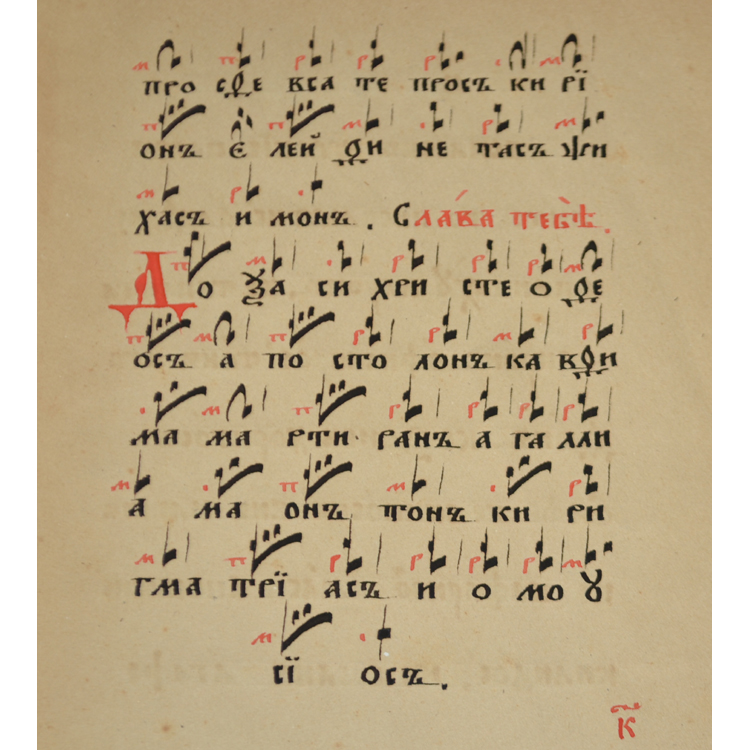 про сѳе вса те просъ ки рї
онъ є лей ѳи не тасъ ѱи
хасъ и монъ . Слава тебѣ.
До ѯа си хри сте о ѳе
осъ а по сто лонъ ка вѳи
ма ма рти ранъ а га лли
а ма онъ тонъ ки ри
гма трї асъ и о мо ꙋ
сї осъ .
к